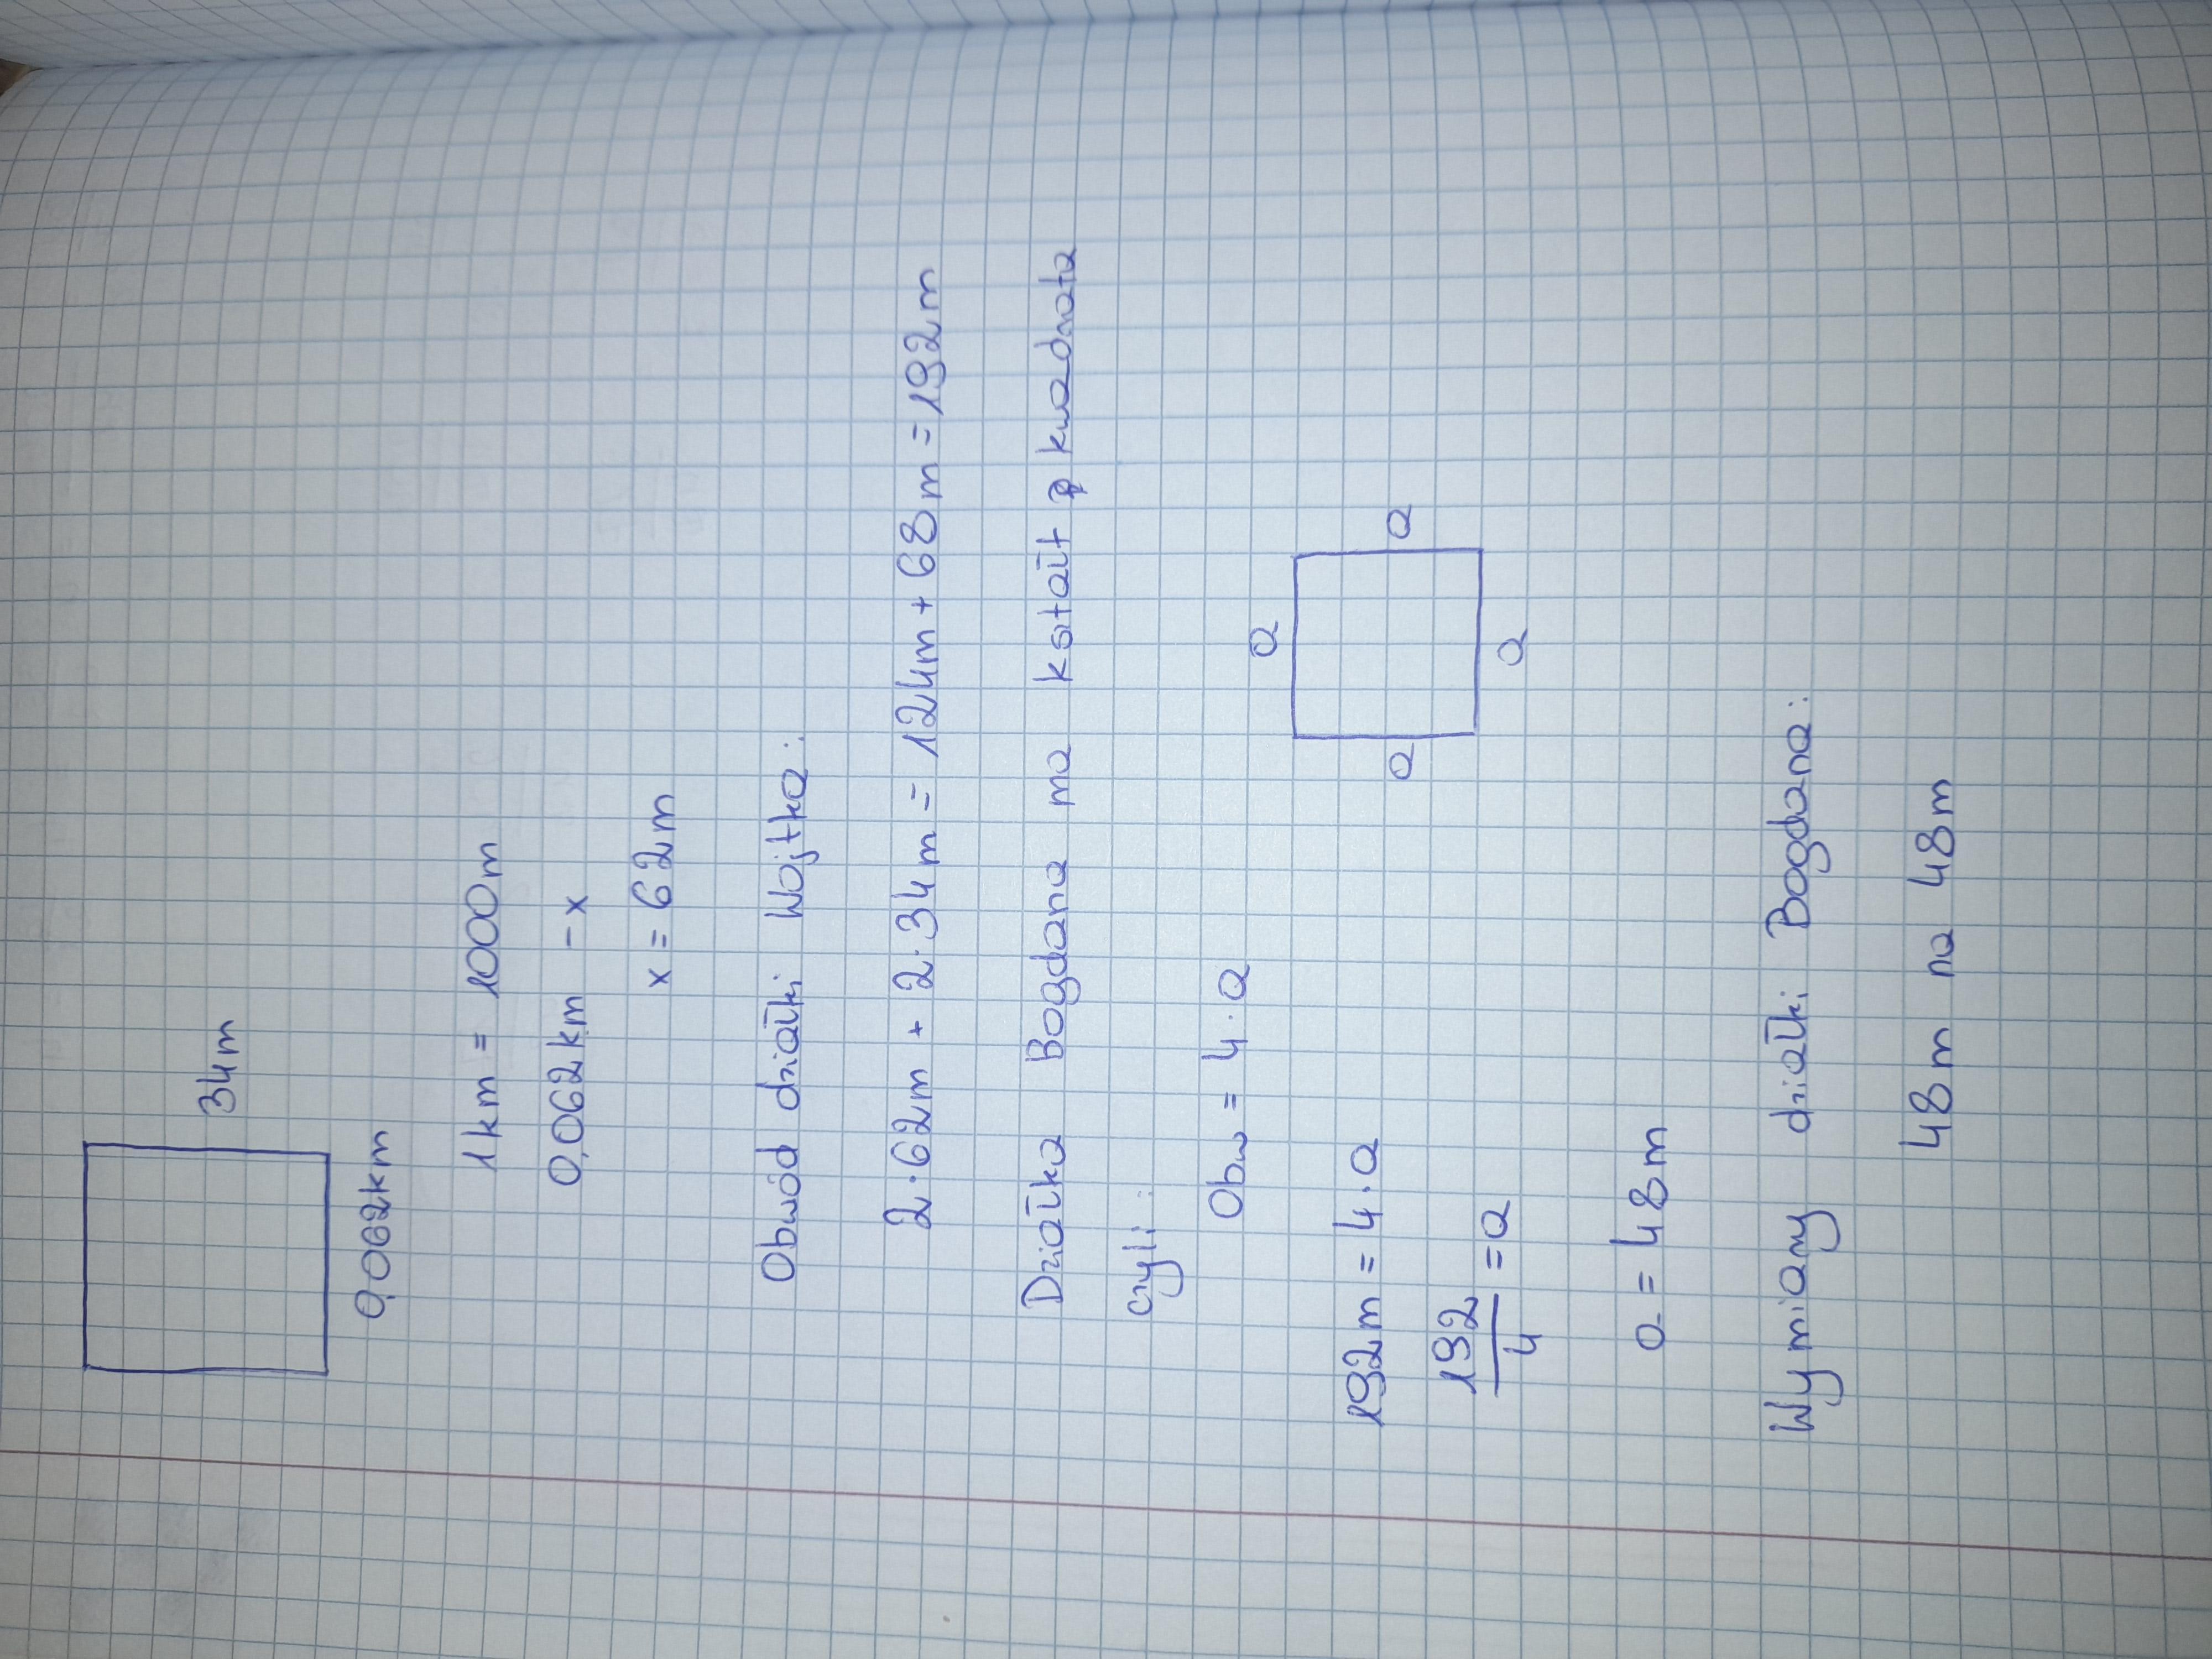 34m
0,062km
1km = 1000m
0,062km - x
x = 62m
Obwód działki Wojtka:
2·62m + 2·34m = 124m + 68m = 192m
Działka Bogdana ma kształt kwadrata
czyli:
Obw = 4·a
a
a
a
a
192m = 4·a
192/4 = a
a = 48m
Wymiany działki Bogdana:
48m na 48m